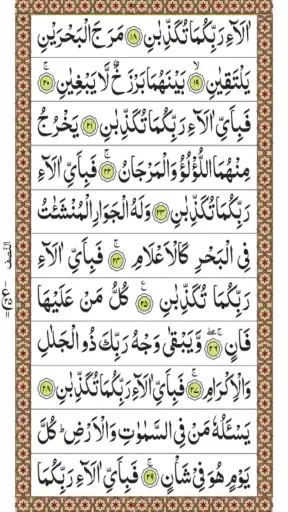 اٰلَآءِ رَبِّكُمَا تُكَذِّبٰنِ ﴿۱۸﴾ مَرَجَ الْبَحْرَيْنِ
يَلْتَقِيٰنِ ﴿۱۹﴾ بَيْنَهُمَا بَرْزَخٌ لَّا يَبْغِيٰنِ ﴿۲۰﴾
فَبِاَيِّ اٰلَآءِ رَبِّكُمَا تُكَذِّبٰنِ ﴿۲۱﴾ يَخْرُجُ
مِنْهُمَا اللُّؤْلُؤُ وَالْمَرْجَانُ ﴿۲۲﴾ فَبِاَيِّ اٰلَآءِ
رَبِّكُمَا تُكَذِّبٰنِ ﴿۲۳﴾ وَلَهُ الْجَوَارِ الْمُنْشَئٰتُ
فِي الْبَحْرِ كَالْاَعْلَامِ ﴿۲۴﴾ فَبِاَيِّ اٰلَآءِ
رَبِّكُمَا تُكَذِّبٰنِ ﴿۲۵﴾ كُلُّ مَنْ عَلَيْهَا
فَانٍ ﴿۲۶﴾ وَّيَبْقٰى وَجْهُ رَبِّكَ ذُو الْجَلٰلِ
وَالْاِكْرَامِ ﴿۲۷﴾ فَبِاَيِّ اٰلَآءِ رَبِّكُمَا تُكَذِّبٰنِ ﴿۲۸﴾
يَسْـَٔلُهٗ مَنْ فِي السَّمٰوٰتِ وَالْاَرْضِ ؕ كُلَّ
يَوْمٍ هُوَ فِيْ شَاْنٍ ﴿۲۹﴾ فَبِاَيِّ اٰلَآءِ رَبِّكُمَا
النصف